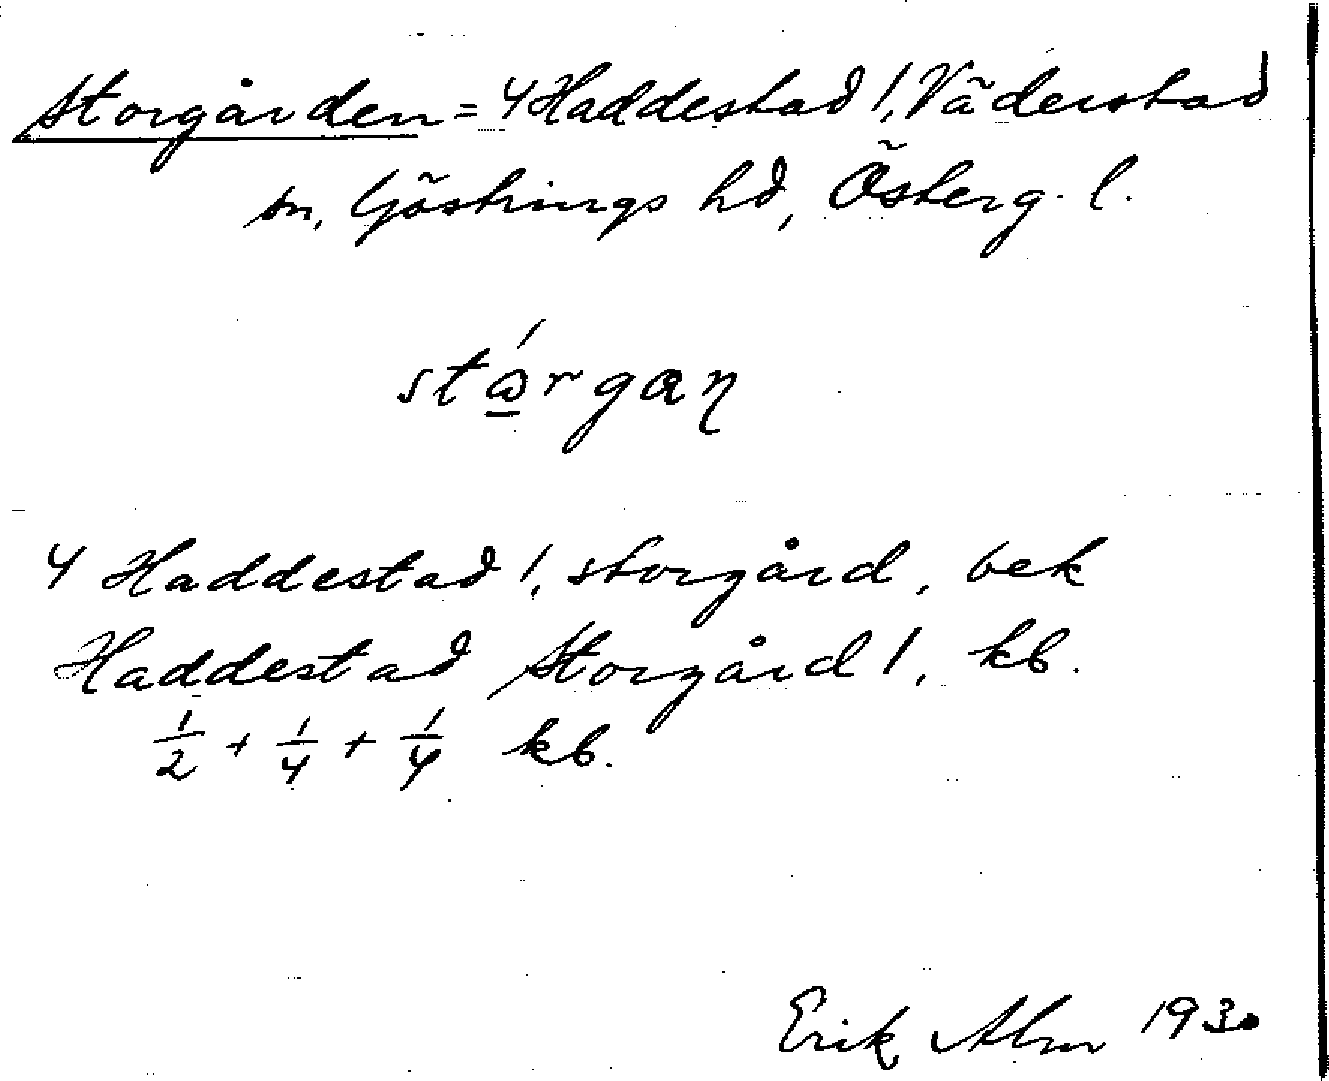 Storgården = 4 Haddestad 1, Väderstad
sn, Göstrings hd, Österg. l.
stǻrgaɳ
4 Haddestad 1, storgård, bek
Haddestad Storgård 1, kb.
1/2 + 1/4 + 1/4 kb.
Erik Alm 1930